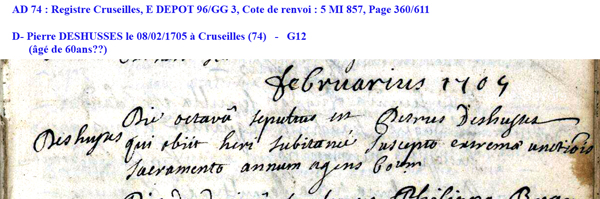 AD 74 : Registre Cruseilles, E DEPOT 96/GG 3, Cote de renvoi : 5 MI 857, Page 360/611
D- Pierre DESHUSSES le 08/02/1705 à Cruseilles (74) - G12
(âgé de 60ans??)
februarius 1705
Die octavâ sepultus est Petrus Deshuses
Deshuses
qui obiit heri subitanè suscepto extremæ unctionis
sacramento annum agens 60um